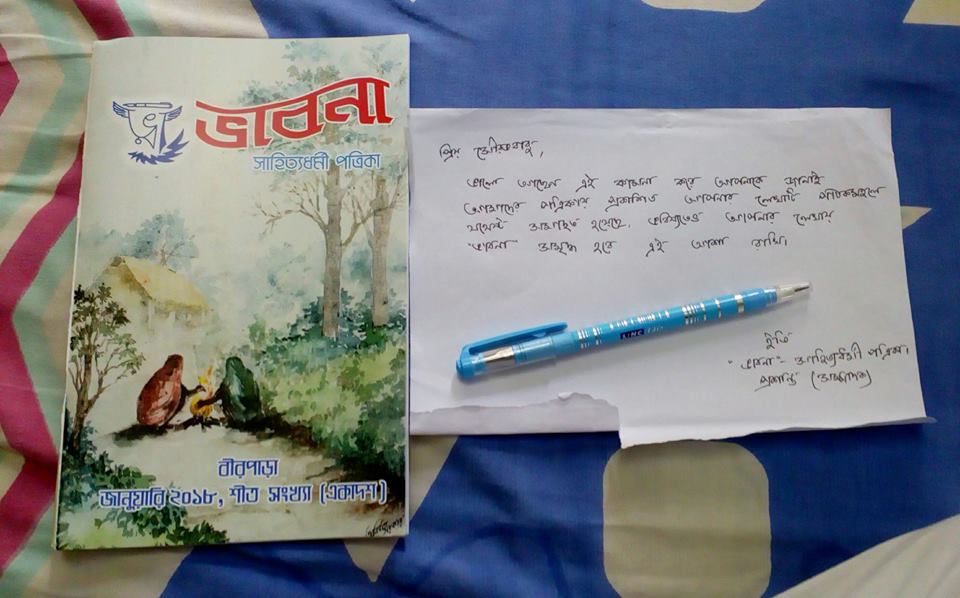 ভাবনা
সাহিত্যধর্মী পত্রিকা
বীরপাড়া
জানুয়ারি ২০১৮, শীত সংখ্যা (একাদশ)
প্রিয় সৌরভবাবু,
ভালো আছেন এই কামনা করে আপনাকে জানাই
আমাদের পত্রিকায় প্রকাশিত আপনার লেখাটি পাঠকমহলে
যথেষ্ট সমাদৃত হয়েছে, ভবিষ্যতেও আপনার লেখায়
"ভাবনা" সমৃদ্ধ হবে এই আশা রাখি।
ইতি
"ভাবনা" - সাহিত্যধর্মী পত্রিকা,
(সম্পাদক)
LINC